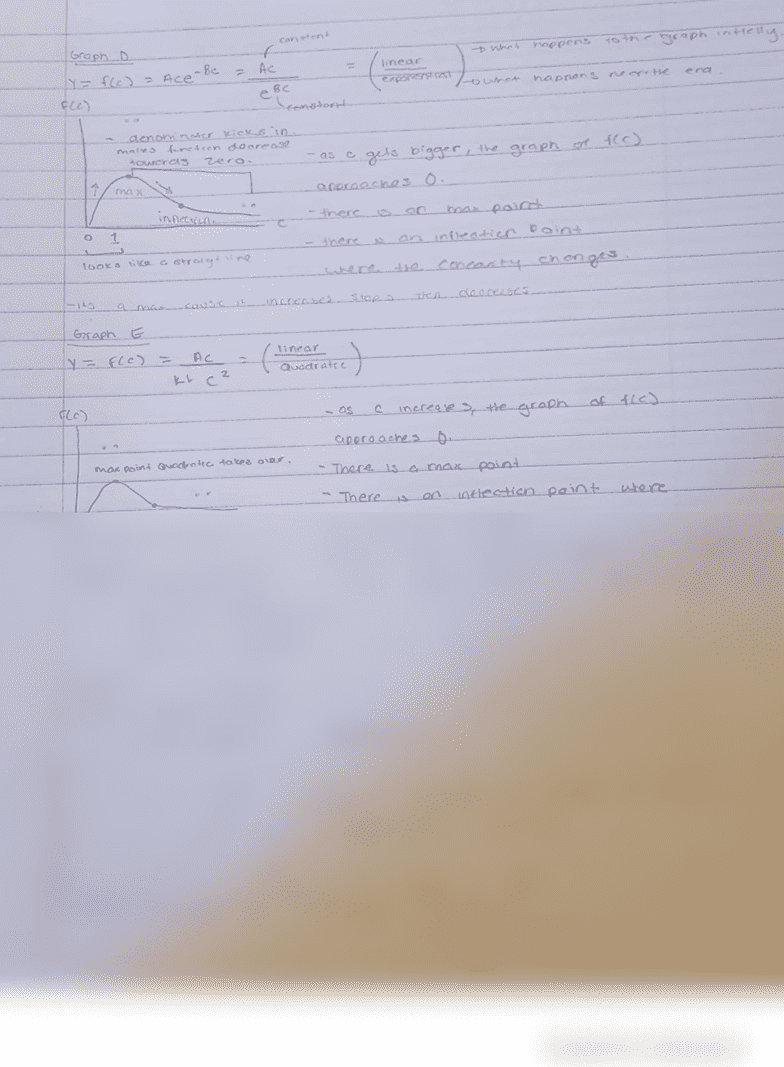 constant
Graph D
y = f(c) = Ace^-Bc = Ac / e^BC = (linear / exponential) → what happens to the graph initially.
→ what happens near the end.
constant
f(c)
- denominator kicks in
makes function decrease
towards zero.
- as c gets bigger, the graph of f(c)
approaches 0.
max
- there is an max point
inflection.
c
- there is an inflection point
0 1
where the concavity changes.
looks like a straight line
- its a max cause it increases stops then decreases
Graph E
y = f(c) = Ac / k+ c² = (linear / Quadratic)
f(c)
- as c increases, the graph of f(c)
approaches 0.
max point Quadratic takes over.
- There is a max point
- There is an inflection point where